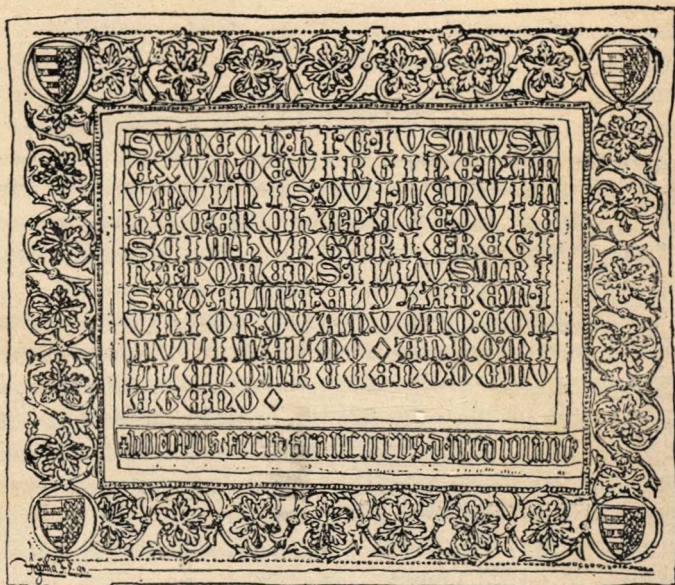 SYMEON:HIC:IVSTVS:Y
EXVM:DE:VIRGINE:NATVM
VLNIS:QVI:TENVIT
HAC:ARCHA:PACE:QVIE
SCIT:HVNGARIE:REGI
NA:POTENS:ILLVSTRI
S:ED:ALTA:ELYZABET:I
VNIOR:QVAM:VOTO:CON
TVLIT:ALMO ◊ ANNO:MI
LLENO:TRECENO:OCTV
AGENO ◊
+hoc opvs:fecit franciscvs d mediolano